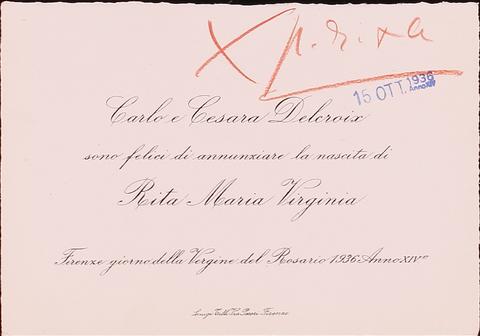 15 OTT. 1936
Anno XIV
Carlo e Cesara Delcroix
sono felici di annunziare la nascita di
Rita Maria Virginia
Firenze giorno della Vergine del Rosario 1936 Anno XIVº
Firenze